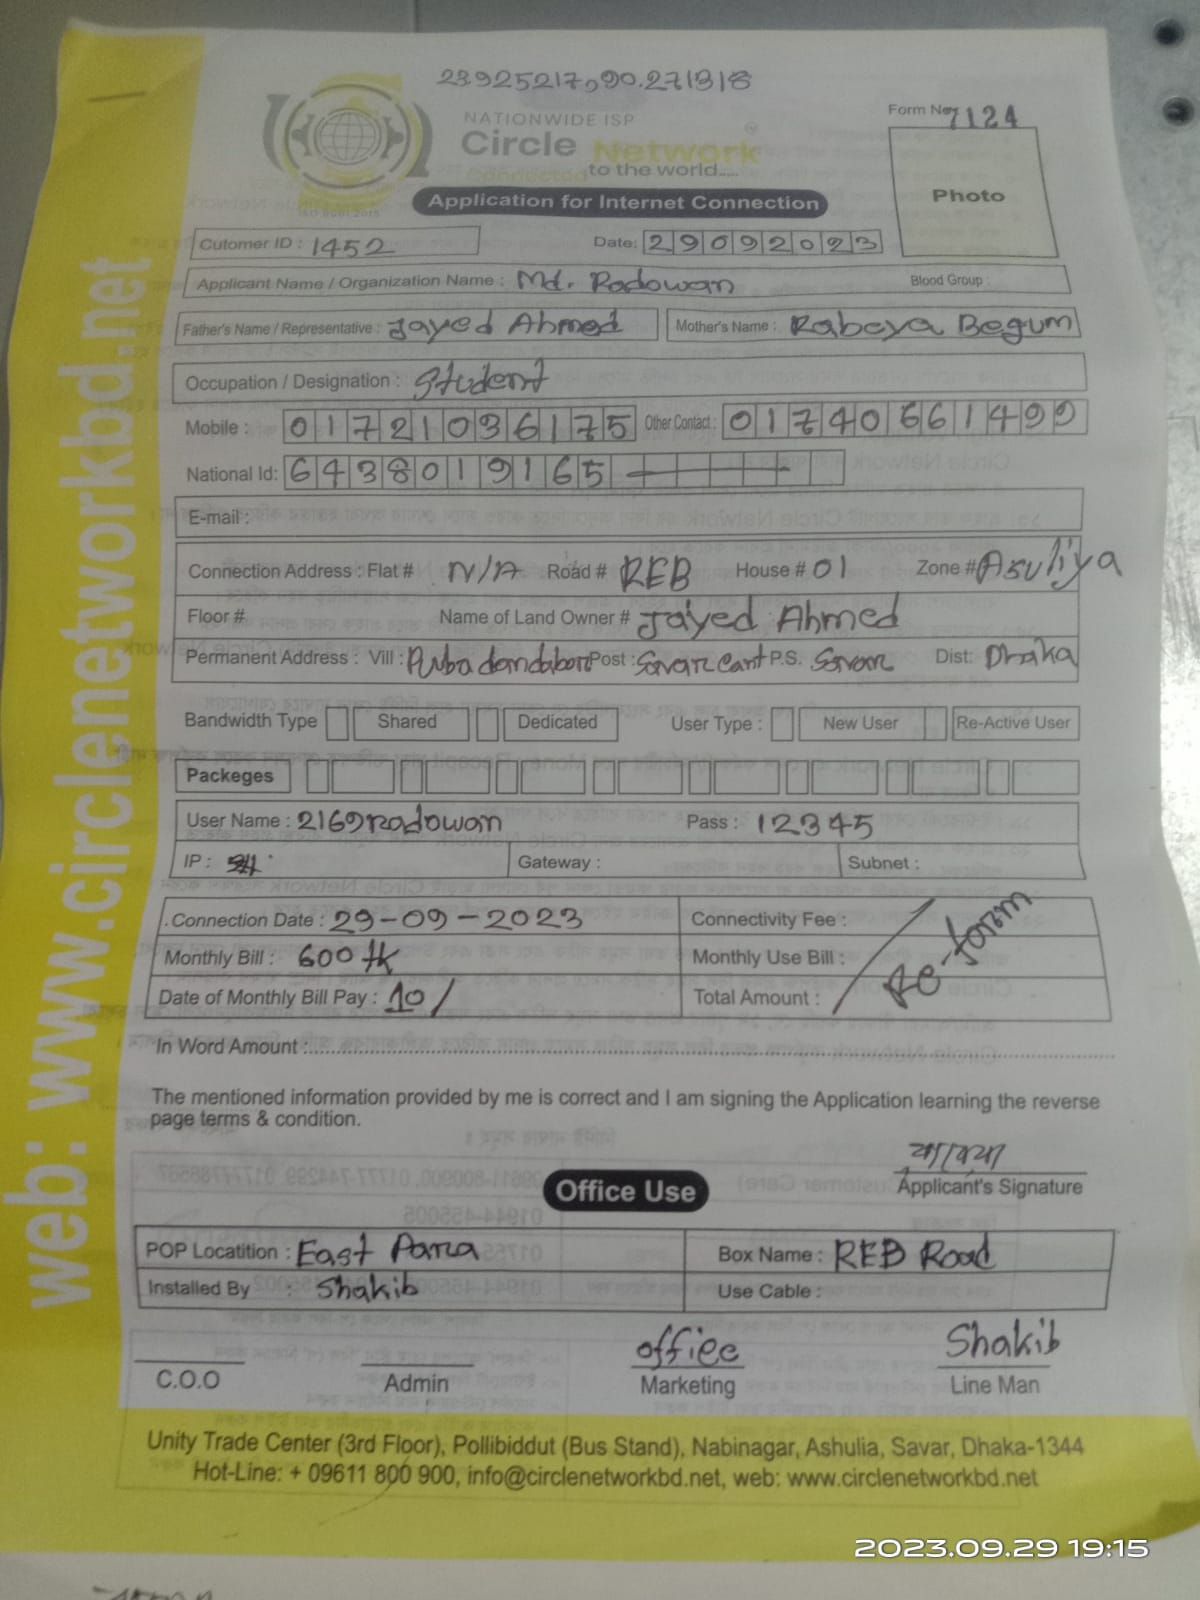 23.925217,90.271318
NATIONWIDE ISP
Circle Network
Connected to the world.....
ISO 9001:2015
Form No 7124
Photo
Application for Internet Connection
Cutomer ID : 1452 Date: 29092023
Applicant Name / Organization Name : Md. Radowan Blood Group :
Father's Name / Representative : Jayed Ahmed Mother's Name : Rabeya Begum
Occupation / Designation : Student
Mobile : 01721036175 Other Contact : 01740661499
National Id: 6438019165
E-mail :
Connection Address : Flat # N/A Road # REB House # 01 Zone # Asuliya
Floor # Name of Land Owner # Jayed Ahmed
Permanent Address : Vill : Puba dandabor Post : Savar cant P.S. Savar Dist: Dhaka
Bandwidth Type Shared Dedicated User Type : New User Re-Active User
Packeges
User Name : 2169radowan Pass : 12345
IP : Gateway : Subnet :
Connection Date : 29-09-2023 Connectivity Fee :
Monthly Bill : 600 tk Monthly Use Bill :
Date of Monthly Bill Pay : 10/ Total Amount : Re-form
In Word Amount :
The mentioned information provided by me is correct and I am signing the Application learning the reverse
page terms & condition.
Applicant's Signature
Office Use
POP Locatition : East Para Box Name : REB Road
Installed By : Shakib Use Cable :
office Shakib
C.O.O Admin Marketing Line Man
Unity Trade Center (3rd Floor), Pollibiddut (Bus Stand), Nabinagar, Ashulia, Savar, Dhaka-1344
Hot-Line: + 09611 800 900, info@circlenetworkbd.net, web: www.circlenetworkbd.net
web: www.circlenetworkbd.net
2023.09.29 19:15